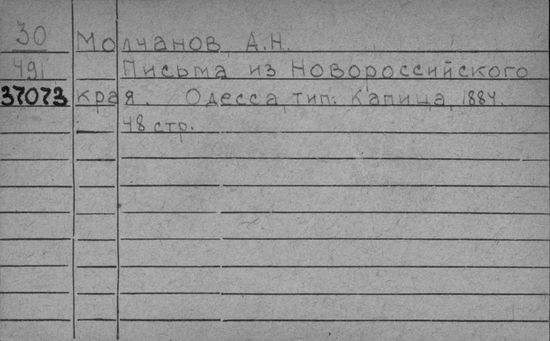 30 Молчанов, А.Н.
491 Письма из Новороссийского
37073 края. Одесса, тип. Капица, 1884.
48 стр.